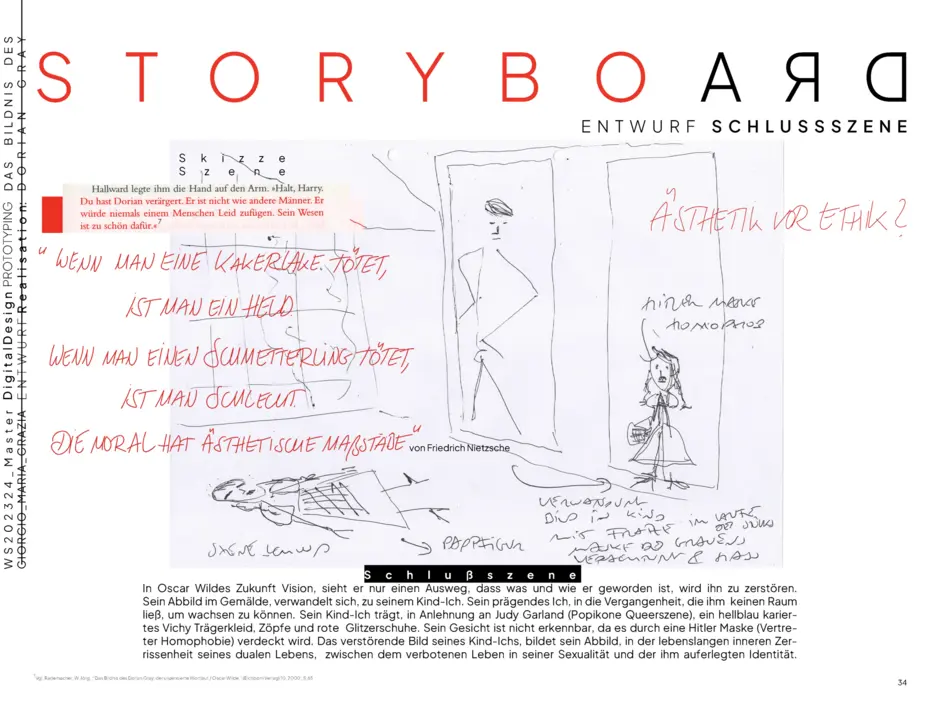 STORYBOARD
ENTWURF SCHLUSSSZENE
WS202324_Master DigitalDesign PROTOTYPING DAS BILDNIS DES
GIORGIO_MARIA_GRAZIA ENTWURF Realisation: DORIAN GRAY
Skizze
Szene
Hallward legte ihm die Hand auf den Arm. »Halt, Harry.
Du hast Dorian verärgert. Er ist nicht wie andere Männer. Er
würde niemals einem Menschen Leid zufügen. Sein Wesen
ist zu schön dafür.«7
ÄSTHETIK VOR ETHIK?
"WENN MAN EINE KAKERLAKE TÖTET,
IST MAN EIN HELD
WENN MAN EINEN SCHMETTERLING TÖTET,
IST MAN SCHLECHT.
DIE MORAL HAT ÄSTHETISCHE MAßSTÄBE"
von Friedrich Nietzsche
HITLER MASKE
HOMOPHOB
PAPPFIGUR
BILD IN KIND
MASKE DES GRAUENS
Schlußszene
In Oscar Wildes Zukunft Vision, sieht er nur einen Ausweg, dass was und wie er geworden ist, wird ihn zu zerstören.
Sein Abbild im Gemälde, verwandelt sich, zu seinem Kind-Ich. Sein prägendes Ich, in die Vergangenheit, die ihm keinen Raum
ließ, um wachsen zu können. Sein Kind-Ich trägt, in Anlehnung an Judy Garland (Popikone Queerszene), ein hellblau karier-
tes Vichy Trägerkleid, Zöpfe und rote Glitzerschuhe. Sein Gesicht ist nicht erkennbar, da es durch eine Hitler Maske (Vertre-
ter Homophobie) verdeckt wird. Das verstörende Bild seines Kind-Ichs, bildet sein Abbild, in der lebenslangen inneren Zer-
rissenheit seines dualen Lebens, zwischen dem verbotenen Leben in seiner Sexualität und der ihm auferlegten Identität.
34